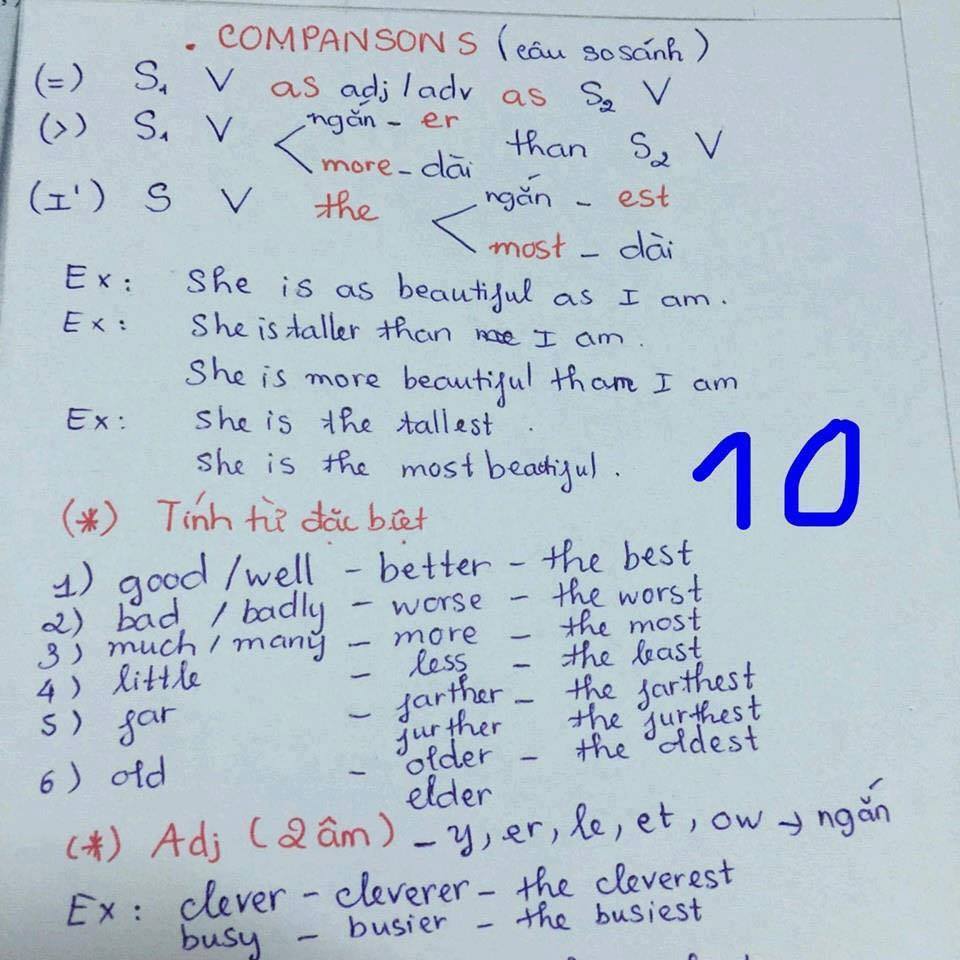 . COMPANSONS (câu so sánh)
(=) S₁ V as adj/adv as S₂ V
(>) S₁ V < ngắn - er
more - dài
than S₂ V
(I') S V the < ngắn - est
most - dài
Ex: She is as beautiful as I am.
Ex: She is taller than I am.
She is more beautiful than I am
Ex: She is the tallest.
She is the most beatiful.
10
(*) Tính từ đặc biệt
1) good/well - better - the best
2) bad / badly - worse - the worst
3) much/many - more - the most
4) little - less - the least
5) far - farther - the farthest
further the furthest
6) old - older - the oldest
elder
(*) Adj (2 âm) - y, er, le, et, ow → ngắn
Ex: clever - cleverer - the cleverest
busy - busier - the busiest